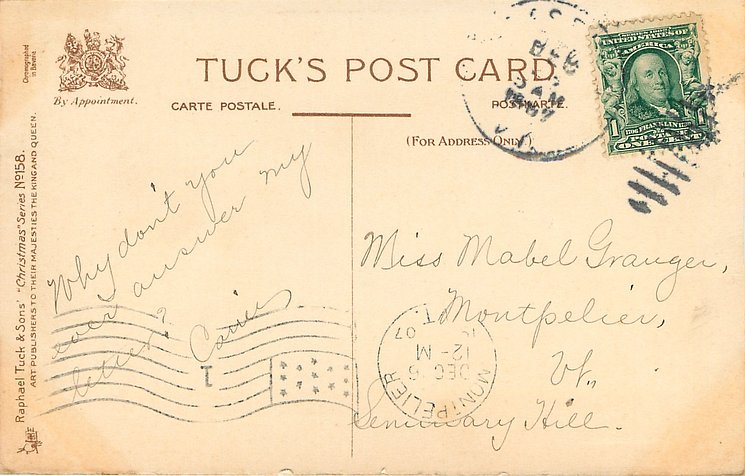 Chromographed
in Bavaria
By Appointment.
TUCK'S POST CARD.
CARTE POSTALE.
POSTKARTE.
(FOR ADDRESS ONLY.)
Raphael Tuck & Sons' "Christmas" Series No 158.
ART PUBLISHERS TO THEIR MAJESTIES THE KING AND QUEEN.
DEC
5
AM
1907
VT.
SERIES 1902
UNITED STATES OF
AMERICA
1
FRANKLIN
POSTAGE
ONE CENT
Why don't you
ever answer my
letter?
1
MONTPELIER
DEC 6
12-M
07
Miss Mabel Granger,
Montpelier,
Vt.,
Seminary Hill.